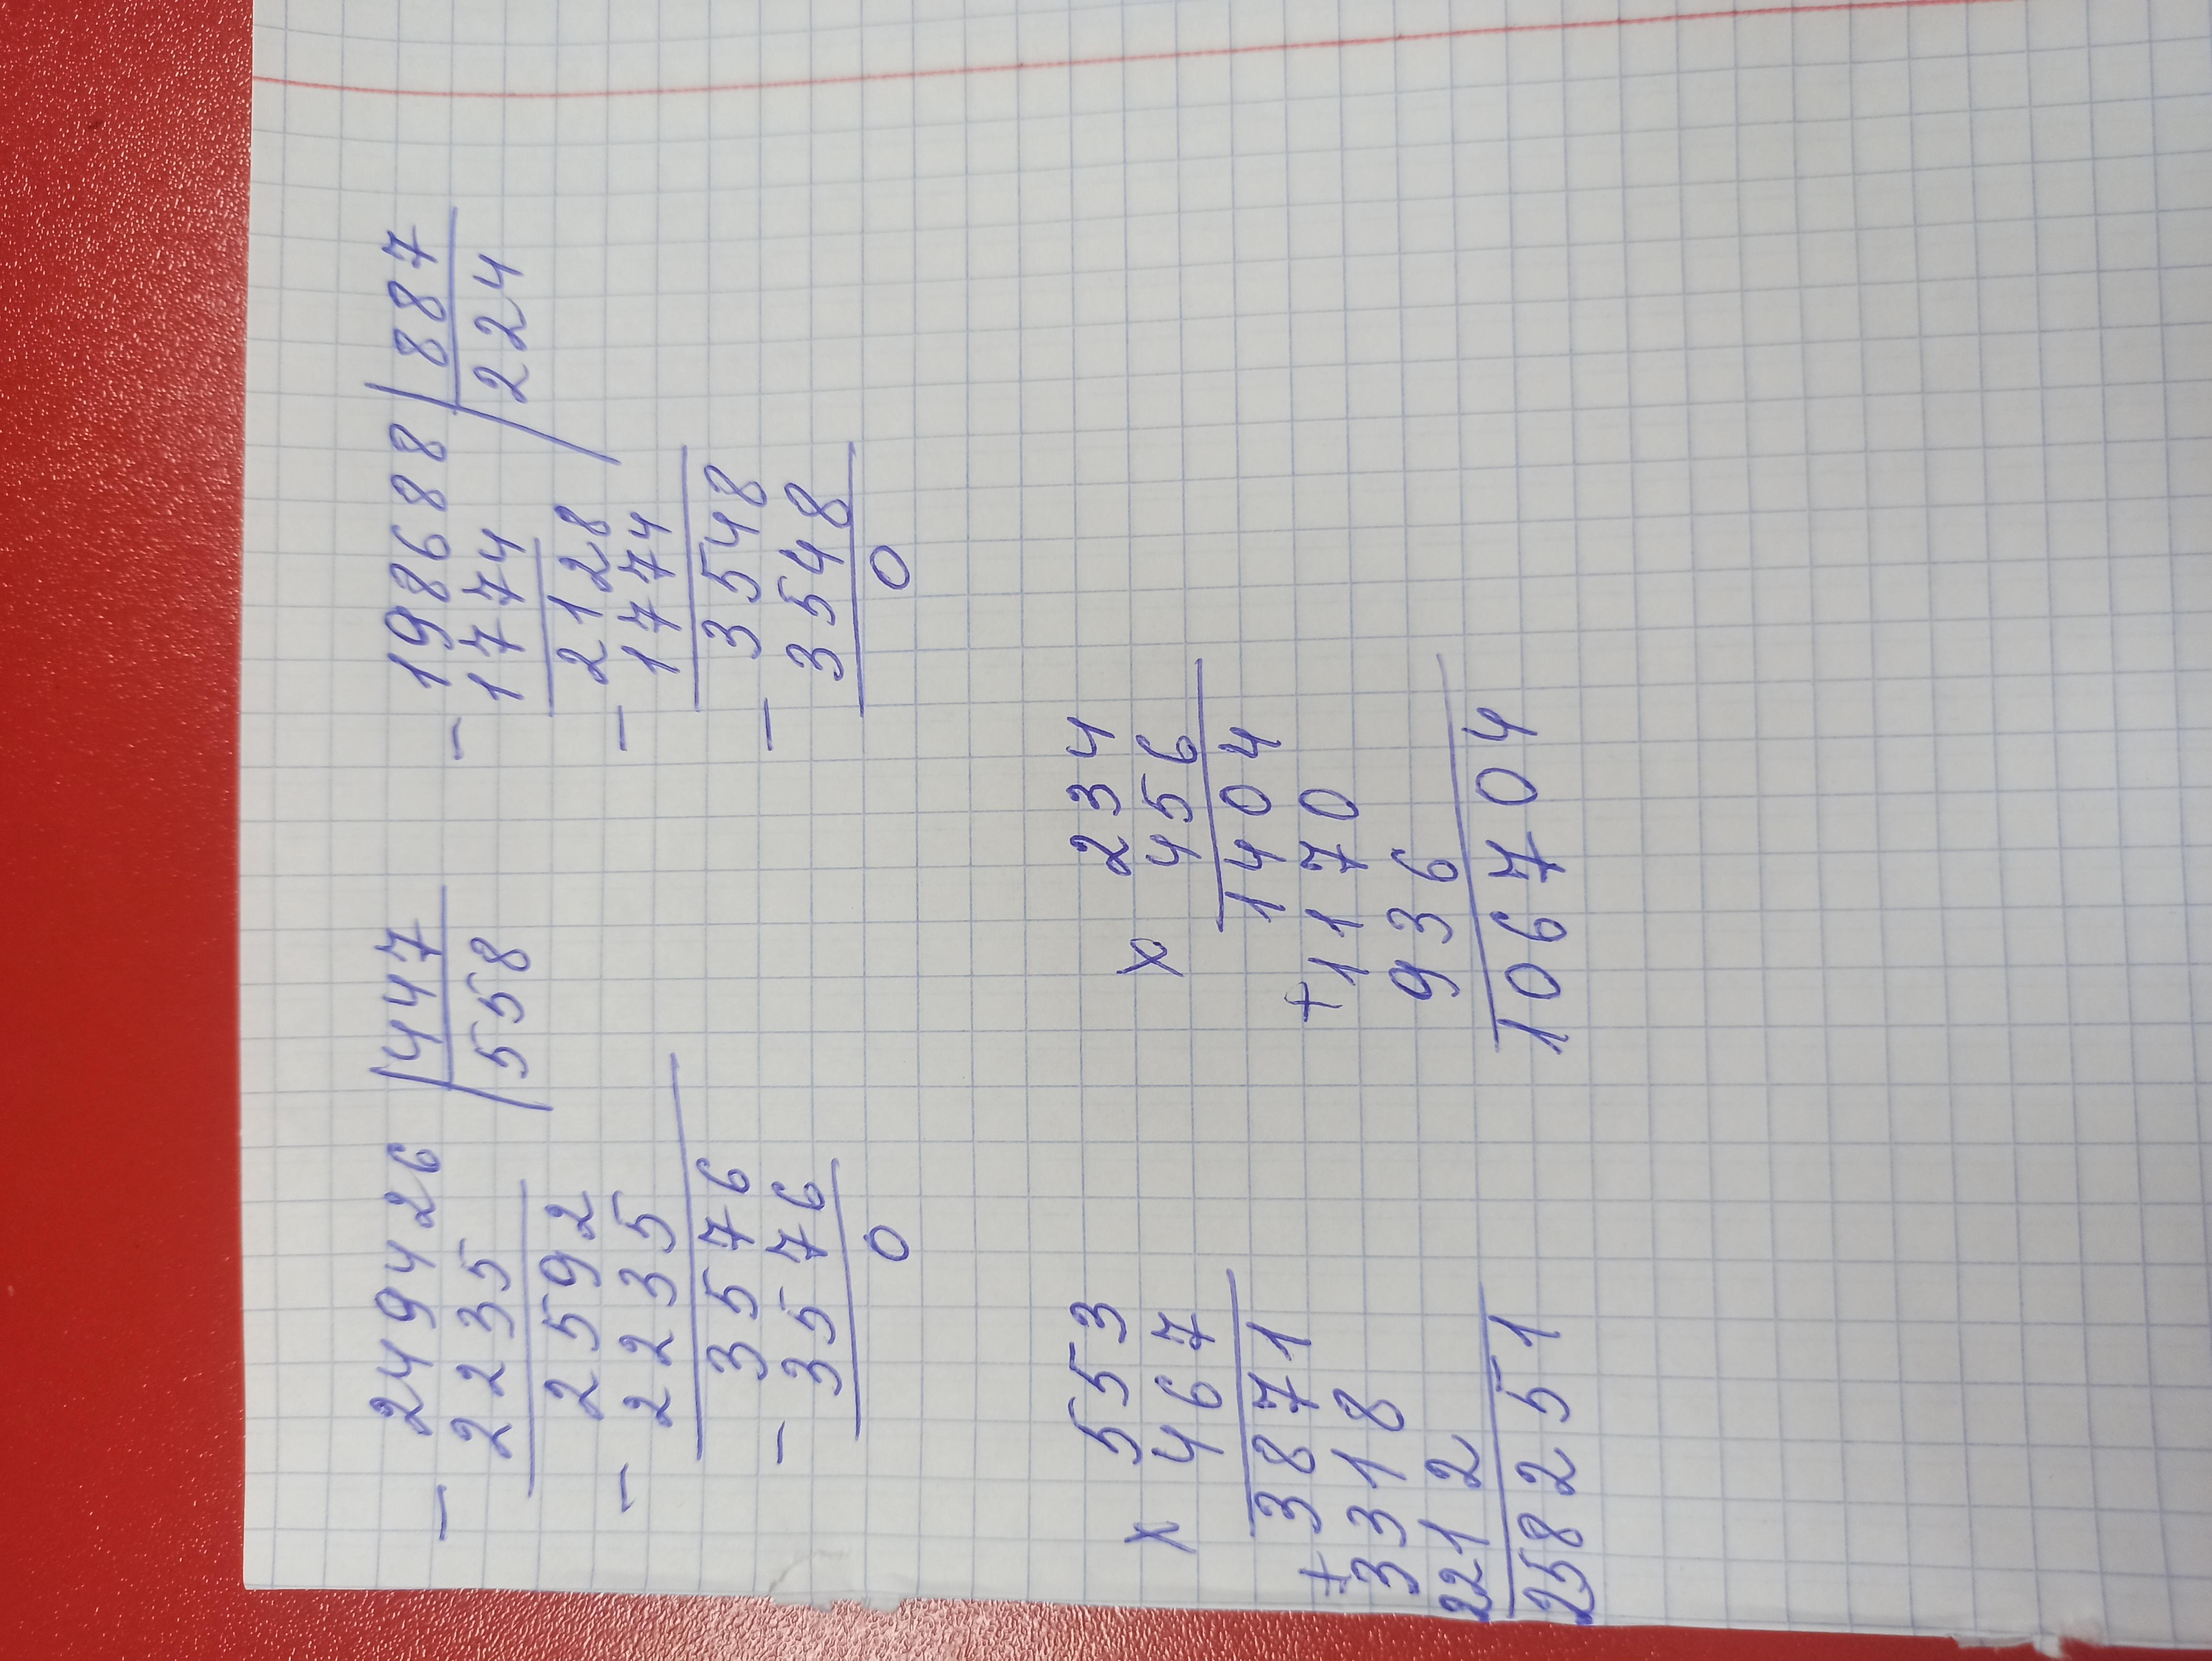 - 249426 | 447
2235 | 558
- 2592
2235
- 3576
3576
0
- 198688 | 887
1774 | 224
- 2128
1774
- 3548
3548
0
x 553
467
+ 3871
3318
2212
258251
x 234
456
1404
+ 1170
936
106704